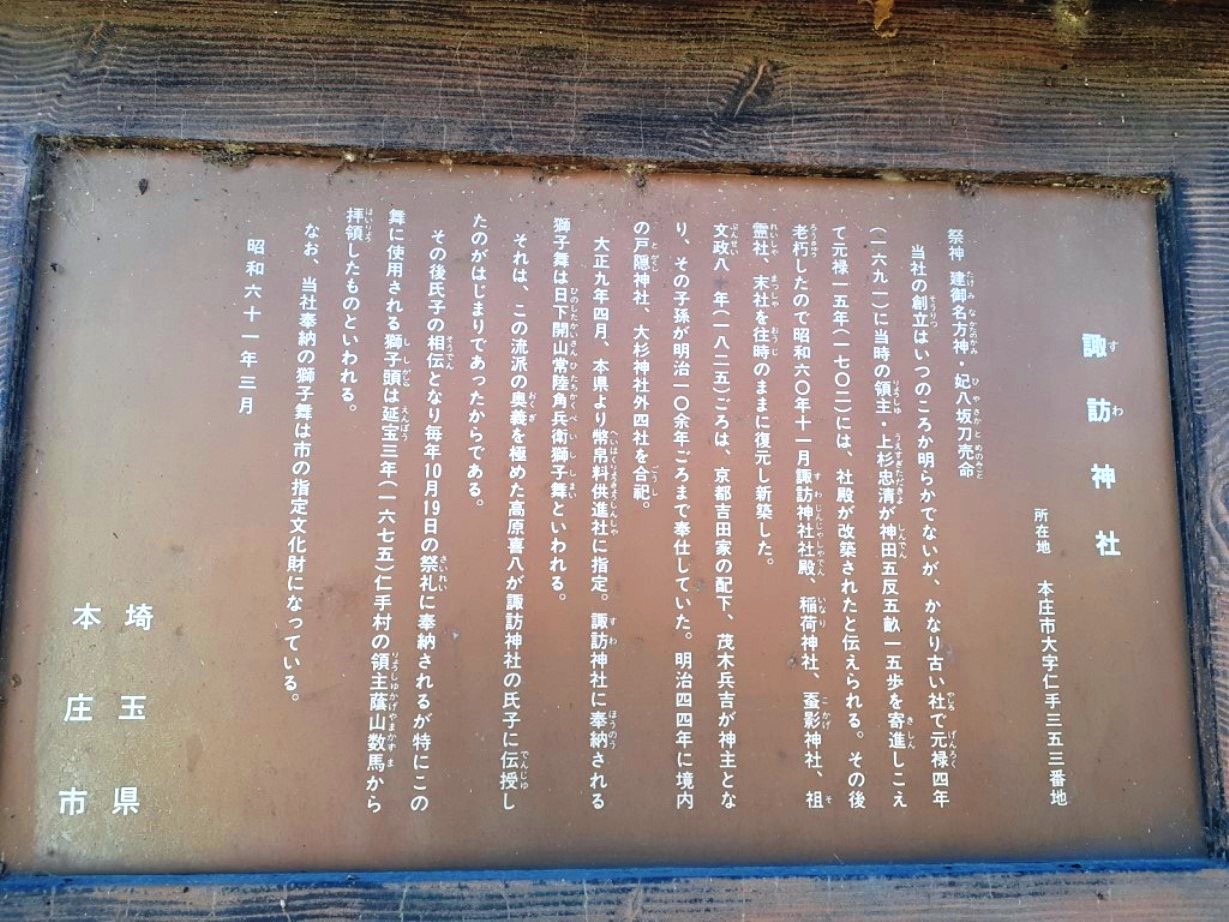 諏訪神社
所在地　本庄市大字仁手三五三番地
祭神　建御名方神・妃八坂刀売命
当社の創立はいつのころか明らかでないが、かなり古い社で元禄四年
(一六九一)に当時の領主・上杉忠清が神田五反五畝一五歩を寄進しこえ
て元禄一五年(一七〇二)には、社殿が改築されたと伝えられる。その後
老朽したので昭和六〇年十一月諏訪神社社殿、稲荷神社、蚕影神社、祖
霊社、末社を往時のままに復元し新築した。
文政八　年(一八二五)ごろは、京都吉田家の配下、茂木兵吉が神主とな
り、その子孫が明治一〇余年ごろまで奉仕していた。明治四四年に境内
の戸隠神社、大杉神社外四社を合祀。
大正九年四月、本県より幣帛料供進社に指定。諏訪神社に奉納される
獅子舞は日下開山常陸角兵衛獅子舞といわれる。
それは、この流派の奥義を極めた高原喜八が諏訪神社の氏子に伝授し
たのがはじまりであったからである。
その後氏子の相伝となり毎年10月19日の祭礼に奉納されるが特にこの
舞に使用される獅子頭は延宝三年(一六七五)仁手村の領主蔭山数馬から
拝領したものといわれる。
なお、当社奉納の獅子舞は市の指定文化財になっている。
昭和六十一年三月
埼玉県
本庄市